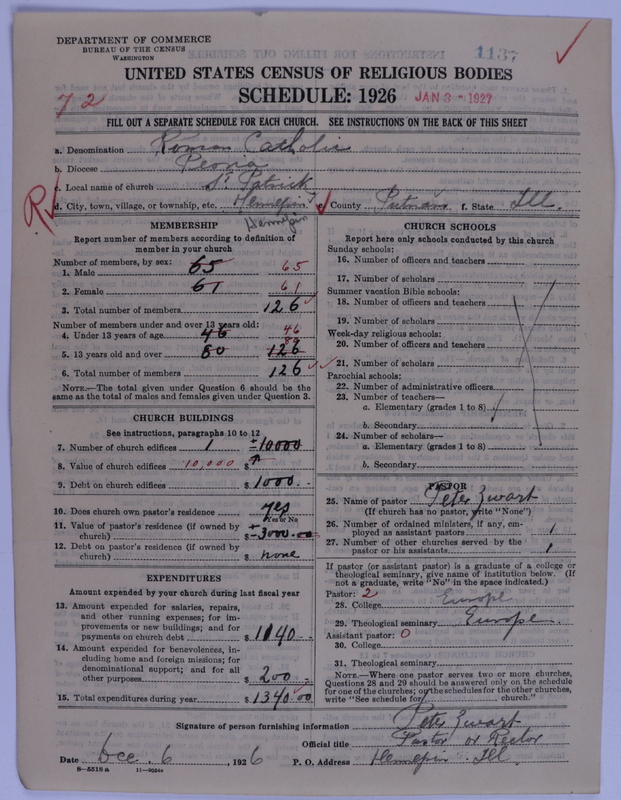 DEPARTMENT OF COMMERCE
BUREAU OF THE CENSUS
WASHINGTON
1137
UNITED STATES CENSUS OF RELIGIOUS BODIES
SCHEDULE: 1926
JAN 3 - 1927
72
FILL OUT A SEPARATE SCHEDULE FOR EACH CHURCH. SEE INSTRUCTIONS ON THE BACK OF THIS SHEET
a. Denomination Roman Catholic
b. Diocese Peoria
c. Local name of church St Patrick
d. City, town, village, or township, etc. Hennepin e. County Putnam f. State Ill.
Hennepin
R
MEMBERSHIP
Report number of members according to definition of
member in your church
Number of members, by sex:
1. Male 65 65
2. Female 61 61
3. Total number of members 126
Number of members under and over 13 years old:
4. Under 13 years of age 46 46
5. 13 years old and over 80 126 80
6. Total number of members 126
NOTE.—The total given under Question 6 should be the
same as the total of males and females given under Question 3.
CHURCH BUILDINGS
See instructions, paragraphs 10 to 12
7. Number of church edifices 1 10000
8. Value of church edifices 10,000 $
9. Debt on church edifices $ 1000
10. Does church own pastor's residence yes
Yes or No
11. Value of pastor's residence (if owned by
church) $ 3000.00
12. Debt on pastor's residence (if owned by
church) $ none
EXPENDITURES
Amount expended by your church during last fiscal year
13. Amount expended for salaries, repairs,
and other running expenses; for im-
provements or new buildings; and for
payments on church debt $ 1140
14. Amount expended for benevolences, in-
cluding home and foreign missions; for
denominational support; and for all
other purposes $ 200
15. Total expenditures during year $ 1340.00
CHURCH SCHOOLS
Report here only schools conducted by this church
Sunday schools:
16. Number of officers and teachers
17. Number of scholars
Summer vacation Bible schools:
18. Number of officers and teachers
19. Number of scholars
Week-day religious schools:
20. Number of officers and teachers
21. Number of scholars
Parochial schools:
22. Number of administrative officers
23. Number of teachers—
a. Elementary (grades 1 to 8)
b. Secondary
24. Number of scholars—
a. Elementary (grades 1 to 8)
b. Secondary
PASTOR
25. Name of pastor Peter Zwart
(If church has no pastor, write "None")
26. Number of ordained ministers, if any, em-
ployed as assistant pastors 1
27. Number of other churches served by the
pastor or his assistants 1
If pastor (or assistant pastor) is a graduate of a college or
theological seminary, give name of institution below. (If
not a graduate, write "No" in the space indicated.)
Pastor: 2
28. College Europe
29. Theological seminary Europe
Assistant pastor: 0
30. College
31. Theological seminary
NOTE.—Where one pastor serves two or more churches,
Questions 28 and 29 should be answered only on the schedule
for one of the churches; on the schedules for the other churches,
write "See schedule for church."
Signature of person furnishing information Peter Zwart
Official title Pastor or Rector
Date Dec. 6, 1926 P. O. Address Hennepin Ill.
8—5518a 11—9024a